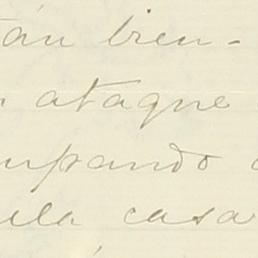 tán bien-
ataque
upando
ela casa